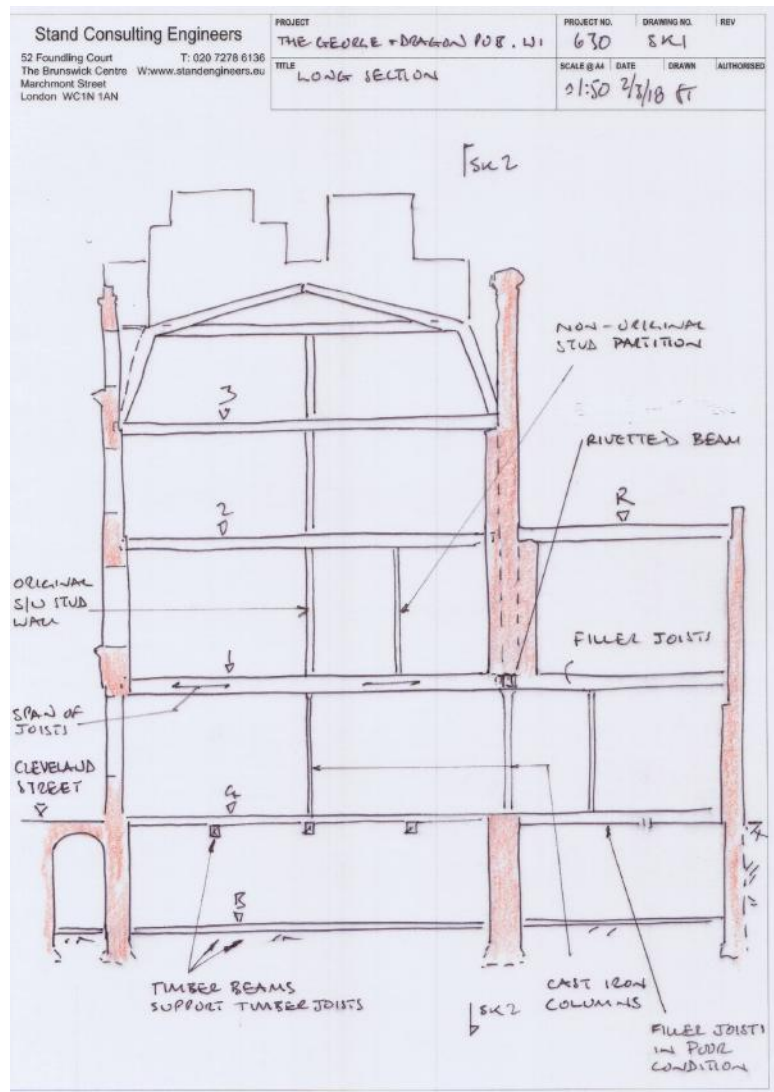 Stand Consulting Engineers
52 Foundling Court T: 020 7278 6136
The Brunswick Centre W:www.standengineers.eu
Marchmont Street
London WC1N 1AN
PROJECT
THE GEORGE + DRAGON PUB. W1
PROJECT NO.
630
DRAWING NO.
SK1
REV
TITLE
LONG SECTION
SCALE @ A4
1:50
DATE
2/3/18
DRAWN
AUTHORISED
SK2
NON-ORIGINAL
STUD PARTITION
3
RIVETTED BEAM
R
2
ORIGINAL
S/W STUD
WALL
FILLER JOISTS
1
SPAN OF
JOISTS
CLEVELAND
STREET
G
B
TIMBER BEAMS
SUPPORT TIMBER JOISTS
CAST IRON
COLUMNS
SK2
FILLER JOISTS
IN POOR
CONDITION